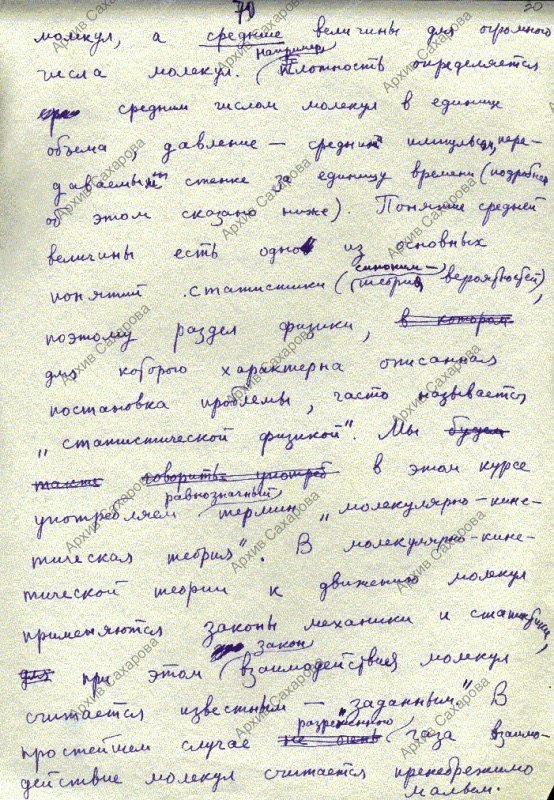 70
20
молекул, а средние величины для огромного
числа молекул. Например плотность определяется
средним числом молекул в единице
объема, давление — средним импульсом, пере-
даваемым стенке за единицу времени (подробнее
об этом сказано ниже). Понятие средней
величины есть одно из основных
понятий статистики (синоним — теория вероятностей),
поэтому раздел физики, в котором
для которого характерна описанная
постановка проблемы, часто называется
„статистической физикой". Мы будем
также говорить употреб в этом курсе
употребляем равнозначный термин „молекулярно-кине-
тическая теория". В молекулярно-кине-
тической теории к движению молекул
применяются законы механики и статистики,
для при этом закон взаимодействия молекул
считается известным — „заданным". В
простейшем случае не очень разреженного газа взаимо-
действие молекул считается пренебрежимо
малым.
Архив Сахарова